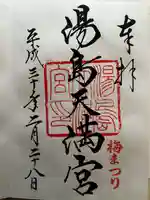 奉拝
湯島天満宮
梅まつり
平成三十年二月二十八日